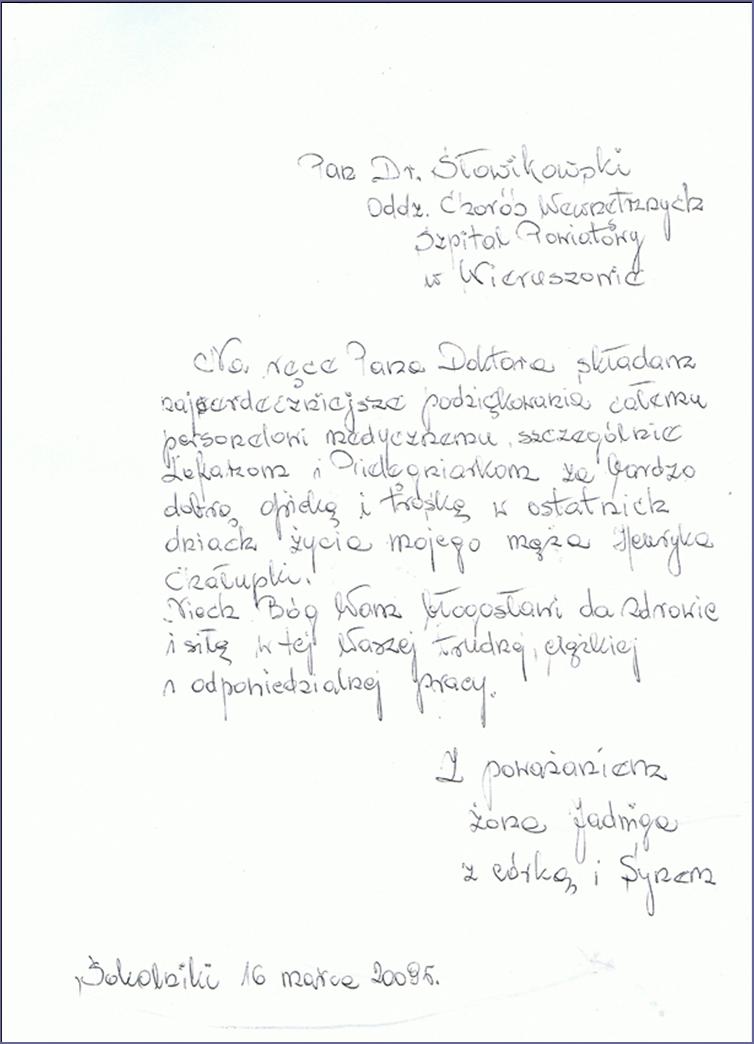 Pan Dr. Słowikowski
Oddz. Chorób Wewnętrznych
Szpital Powiatowy
w Wieruszowie
Na ręce Pana Doktora składam
najserdeczniejsze podziękowania całemu
personelowi medycznemu, szczególnie
Lekarzom i Pielęgniarkom za bardzo
dobrą opiekę i troskę w ostatnich
dniach życia mojego męża Henryka
Chałupki.
Niech Bóg Wam błogosławi da zdrowie
i siłę w tej Waszej trudnej, ciężkiej
i odpowiedzialnej pracy.
Z poważaniem
żona Jadwiga
z córką i Synem
Sokolniki 16 marca 2009r.